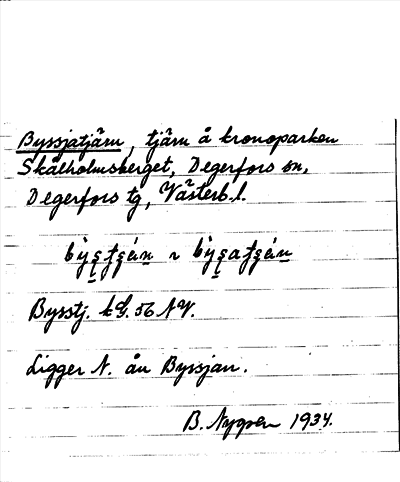 Byssjatjärn, tjärn å kronoparken
Skålholmsberget, Degerfors sn,
Degerfors tg, Västerb.l.
Bysstj. kG. 56 NV.
Ligger N. ån Byssjan.
B. Nygren 1934.